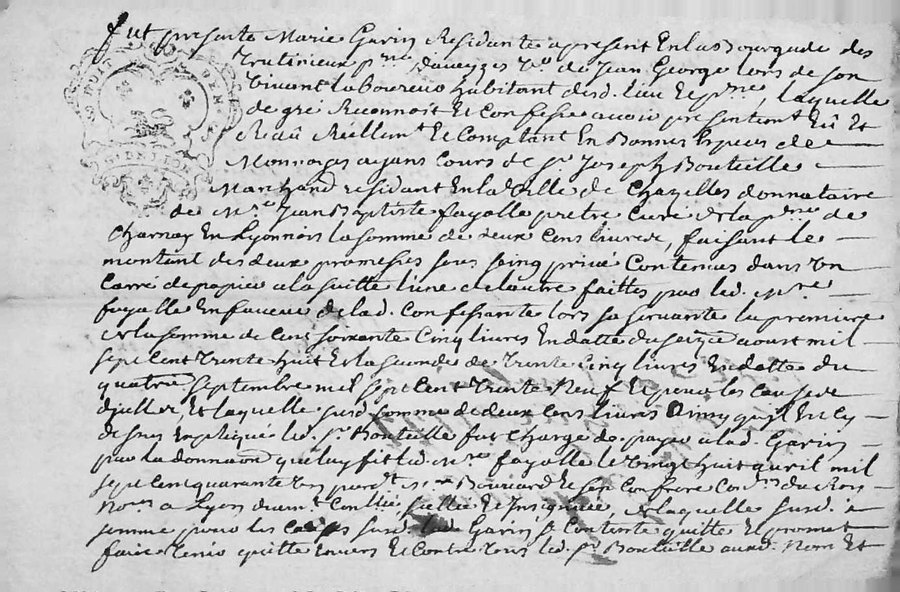 fut presente Marie Garin Residante a present En la Bourgade des
Trutinieux veuve de Jean George lors de son
vivant laboureur habitant dud. lieu laquelle
de gré Reconnoit Et Confesse avoir presentemt Eû Et
Receû Réellemt Et Comptant En Bonnes Especes de
Monnoyes ayans Cours de Sr Joseph Bouteille
Marchand residant En la Ville de Chazelles donnataire
de Mre Jean Baptiste fayolle pretre Curé de la pne de
Charnay En Lyonnois la somme de deux Cens livres, faisant le
montant des deux promesses sous seing privé Contenues dans un
Carré de papier a la suitte l'une de l'autre faittes par led. Mre
fayolle En faveur de lad. Confessante lors sa servante la premiere
de la somme de Cent soixante Cinq livres En datte du seize aoust mil
sept Cent trente huit Et la seconde de trente Cinq livres En datte du
quatre septembre mil sept Cent trente Neuf Et pour les Causes
Et laquelle susd. somme de deux Cens livres Ainsy qu'il Est Cy
dessus Expliqué led. Sr Bouteille fut Chargé de payer a lad. Garin
par la donnaon que luy fit led. Mre fayolle le vingt huit avril mil
sept Cens quarante un pardt Me Bouriard Et son Confrere Conrs du Roy
Nores a Lyon duemt Conllée, scellée Et Insignuée, de laquelle susd.
somme pour les Causes susd. lad. Garin se Contente quitte Et promet
faire tenir quitte Envers Et Contre tous led. Sr Bouteille aud. Nom Et